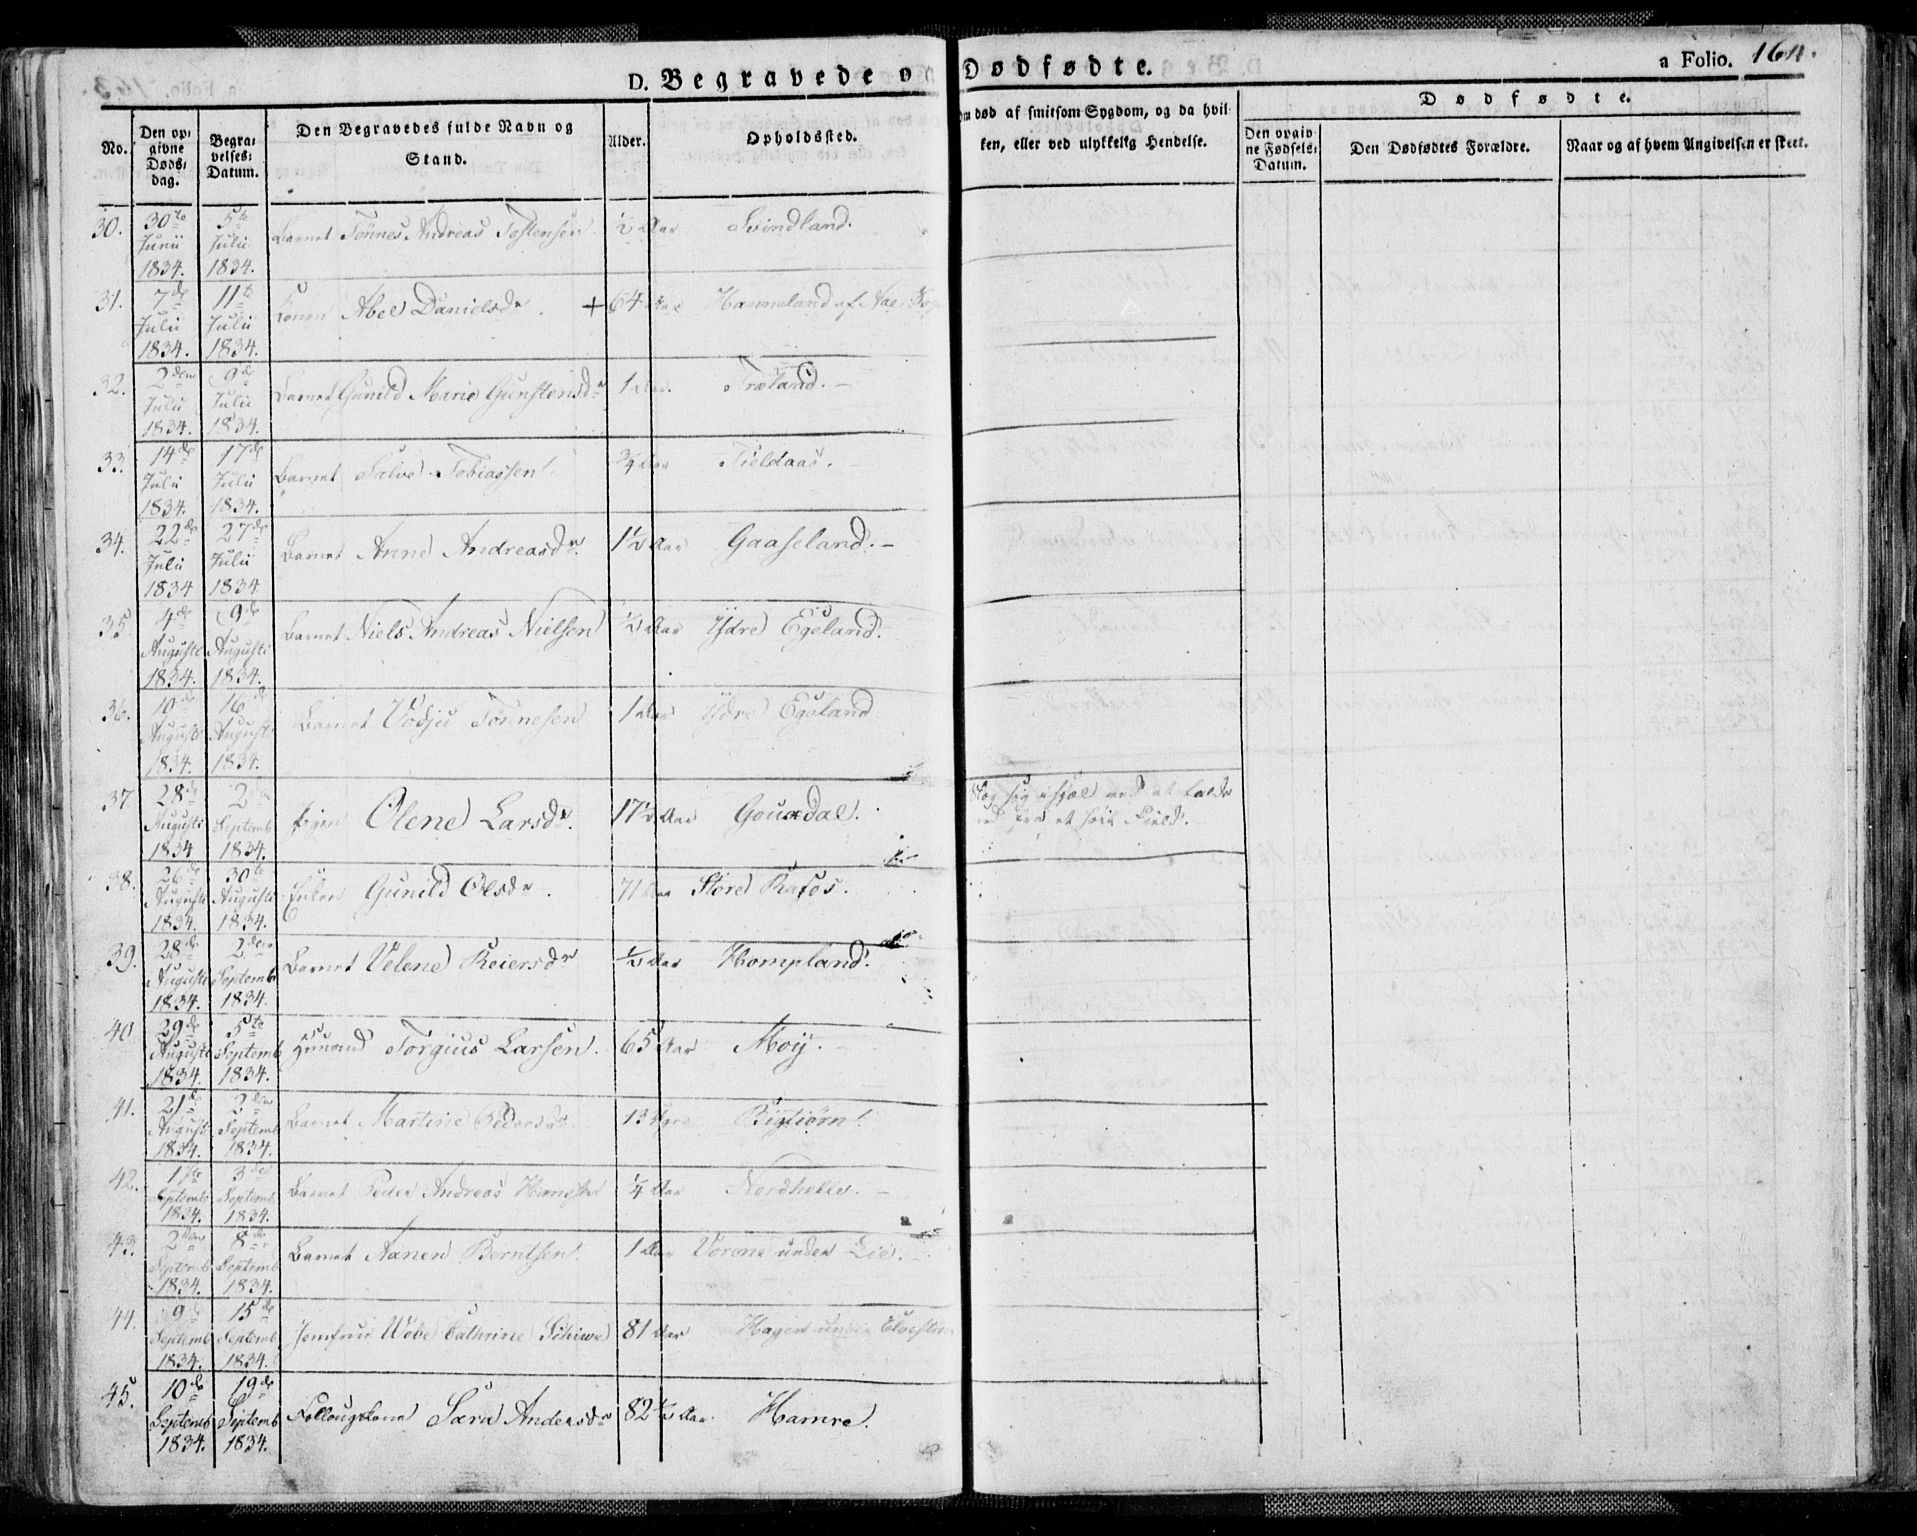 D. Begravede o Dødfødte. a Folio. 164.
No. Den opgivne Døds-dag. Begravelses-Datum. Den Begravedes fulde Navn og Stand. Alder. Opholdssted. død af smitsom Sygdom, og da hvilken, eller ved ulykkelig Hendelse. Dødfødte. Den opgivne Fødsels-Datum. Den Dødfødtes Forældre. Naar og af hvem Angivelsen er skeet.
30. 30te Junii 1834. 5te Julii 1834. Barnet Tønnes Andreas Tostensen ½ Aar Svindland.
31. 7de Julii 1834. 11te Julii 1834. Konen Abel Danielsdr. + 64 Aar Hanneland af
32. 2den Julii 1834. 9de Julii 1834. Barnet Gunild Marie Gunstensdr 1 Aar. Træland. –
33. 14de Julii 1834. 17de Julii 1834. Barnet Salve Tobiassen ¾ Aar Tieldaas. –
34. 22de Julii 1834 27de Julii 1834 Barnet Anne Andreasdr. 1½ Aar Gaaseland. –
35. 4de Augusti 1834. 9de Augusti 1834. Barnet Niels Andreas Nielsen ½ Aar Ydre Egeland.
36. 10de Augusti 1834. 16de Augusti 1834. Barnet Tønnesen 1 Aar Ydre Egeland
37 28de Augusti 1834 2den Septemb 1834. Pigen Olene Larsdr. 17½ Aar Gousdal. slog sig ihjæl ved at falde
ned fra et høit Field. –
38. 26de Augusti 1834. 30te Augusti 1834. Enken Gunild Olsdr. 71 Aar Store Rafos.
39. 28de Augusti 1834. 2den Septemb 1834. Barnet Velene Reiersdr ½ Aar Hompland.
40 29de Augusti 1834. 5te Septemb 1834. Huusmand Torgius Larsen. 65 Aar Moij. –
41. 21de August 1834. 2den Septemb 1834. Barnet Martine Pedersdr 13 Uger
42. 1ste Septemb 1834. 3de Septemb 1834. Barnet Peder Andreas ¼ Aar Nordhelle. –
43. 2den Septemb 1834. 8de Septemb 1834. Barnet Aanen Berntsen. 1 Aar under Lie. –
44. 9de Septemb 1834. 15de Septemb 1834. Jomfrue Cathrine 81 Aar Hagen under
45. 10de Septemb 1834. 19de Septemb 1834. Follougskone Sara Andersdr 82½ Aar. Hamre.